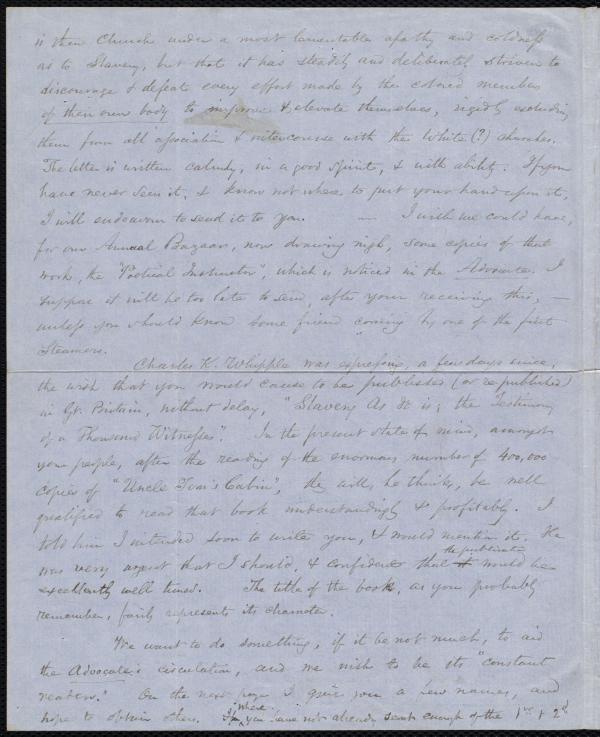 is their Church under a most lamentable apathy and coldness
as to Slavery, but that it has steadily and deliberately striven to
discourage & defeat every effort made by the colored members
of their own body to improve & elevate themselves, rigidly excluding
them from all association & intercourse with the White (?) churches.
The letter is written calmly, in a good spirit, & with ability. If you
have never seen it, & know not where to put your hand upon it,
I will endeavour to send it to you. — I wish we could have,
for our Annual Bazaar, now drawing nigh, some copies of that
work, the "Poetical Instructor", which is noticed in the Advocate. I
suppose it will be too late to send, after your receiving this, —
unless you should know some friend coming by one of the first
Steamers.
Charles K. Whipple was expressing, a few days since,
the wish that you would cause to be published (or re-published)
in Gt. Britain, without delay, "Slavery As It is; the Testimony
of a Thousand Witnesses". In the present state of mind, amongst
your people, after the reading of the enormous number of 400,000
copies of "Uncle Tom's Cabin", they will, he thinks, be well
qualified to read that book understandingly & profitably. I
told him I intended soon to write you, & would mention it. He
was very urgent that I should, & confident that the publication would be
excellently well timed. The title of the book, as you probably
remember, fairly represents its character.
We want to do something, if it be not much, to aid
the Advocate's circulation, and we wish to be its "constant
readers." On the next page I give you a few names, and
hope to obtain others. where you have not already sent enough of the 1st & 2d